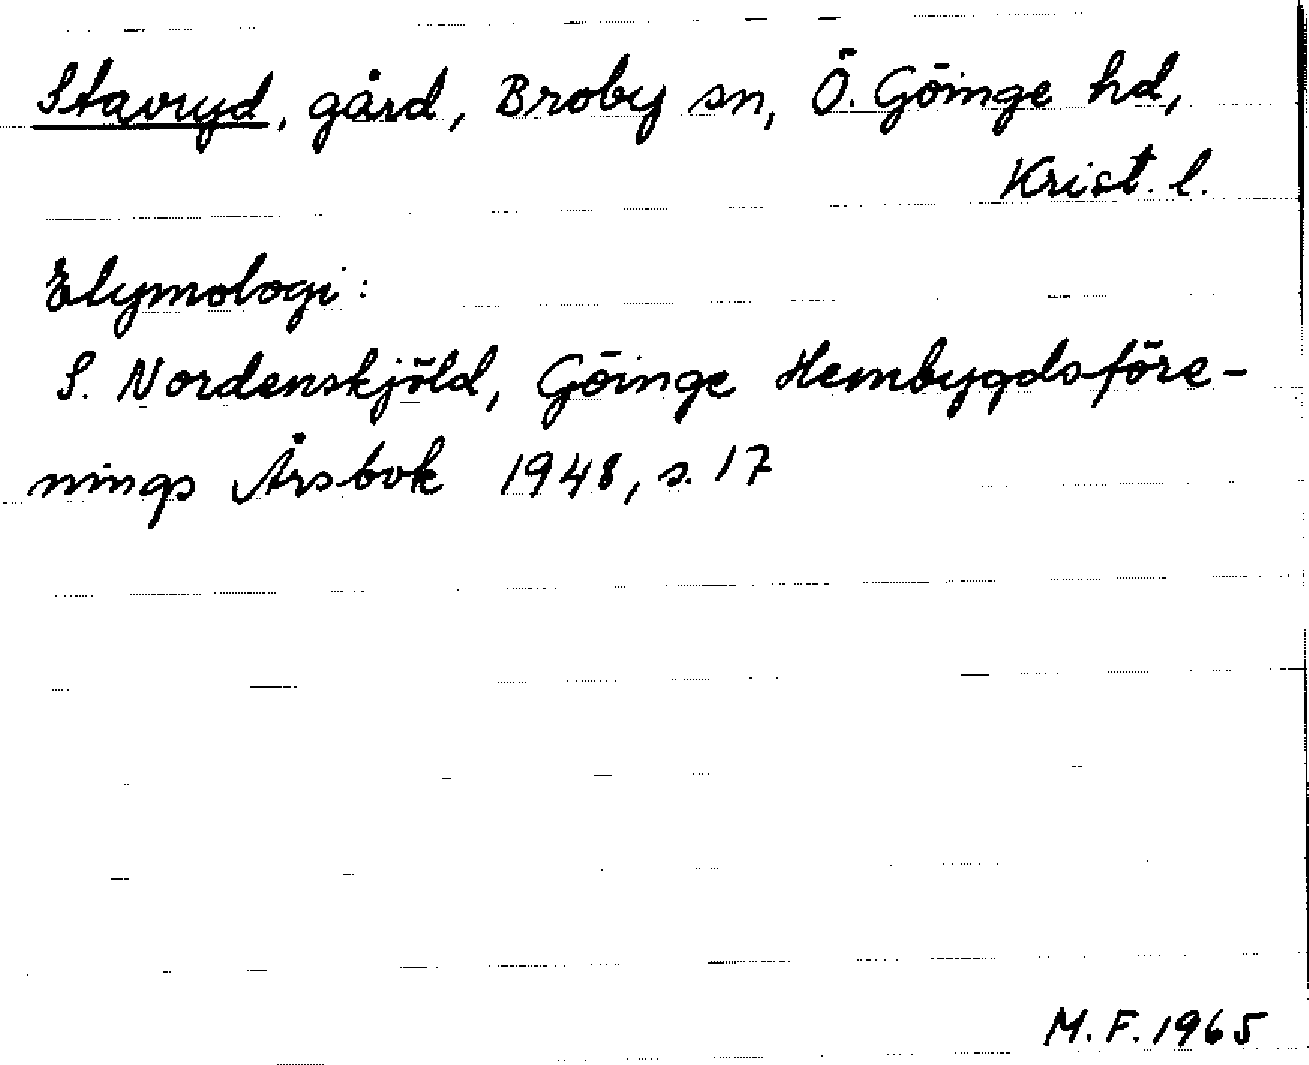 Stavryd, gård, Broby sn, Ö. Göinge hd,
Krist. l.
Etymologi:
S. Nordenskjöld, Göinge Hembygdsföre-
nings Årsbok 1948, s. 17
M. F. 1965